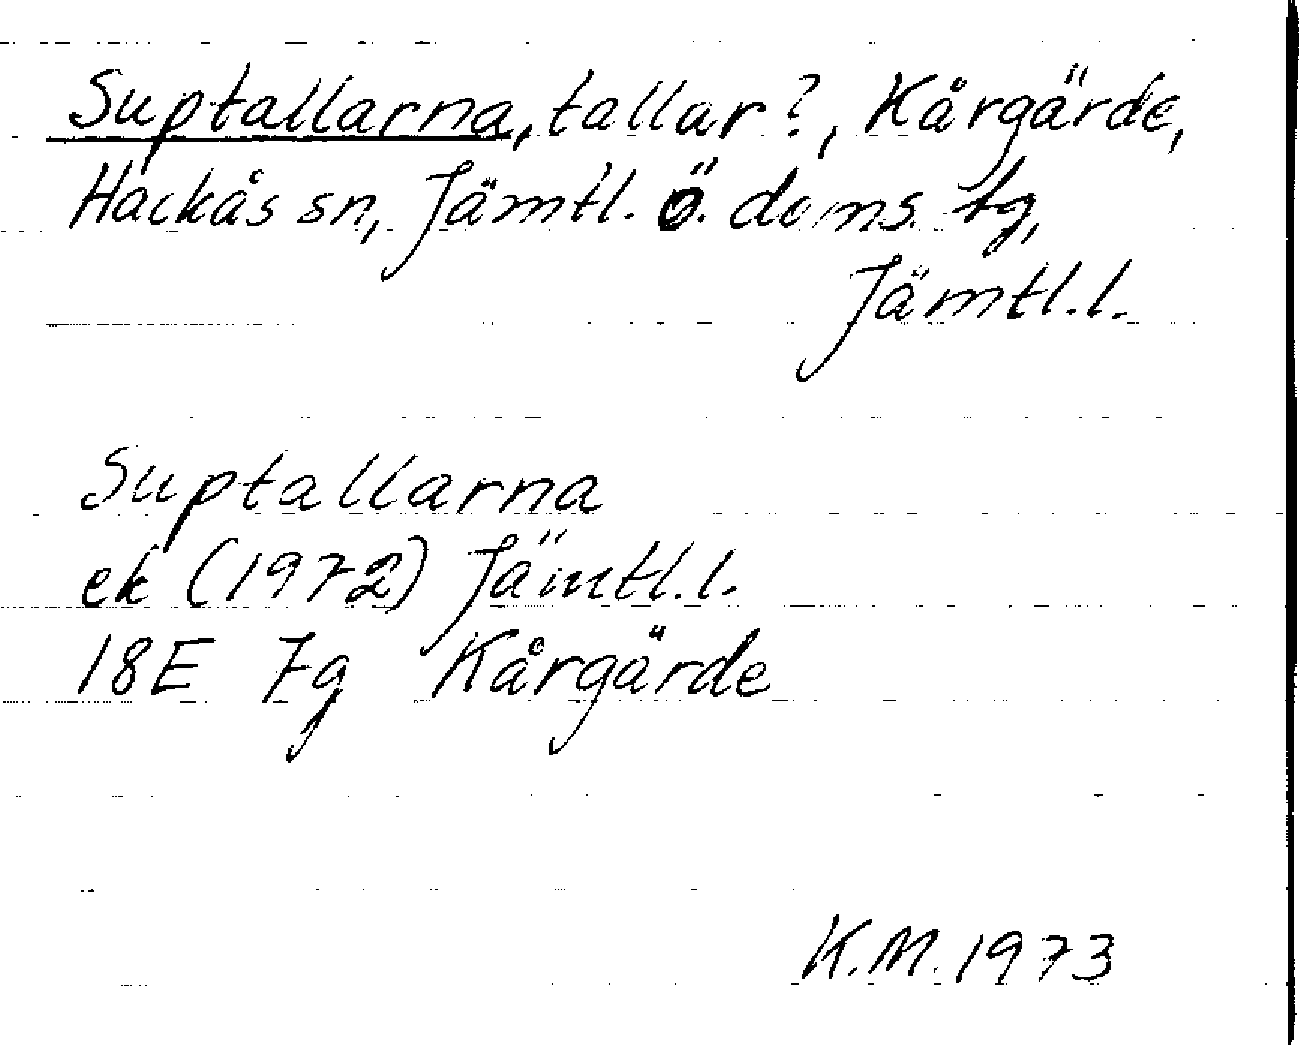 Suptallarna, tallar?, Kårgärde,
Hackås sn, Jämtl. ö. doms. tg,
Jämtl.l.
Suptallarna
ek (1972) Jämtl.l.
18E 7g Kårgärde
K.M. 1973